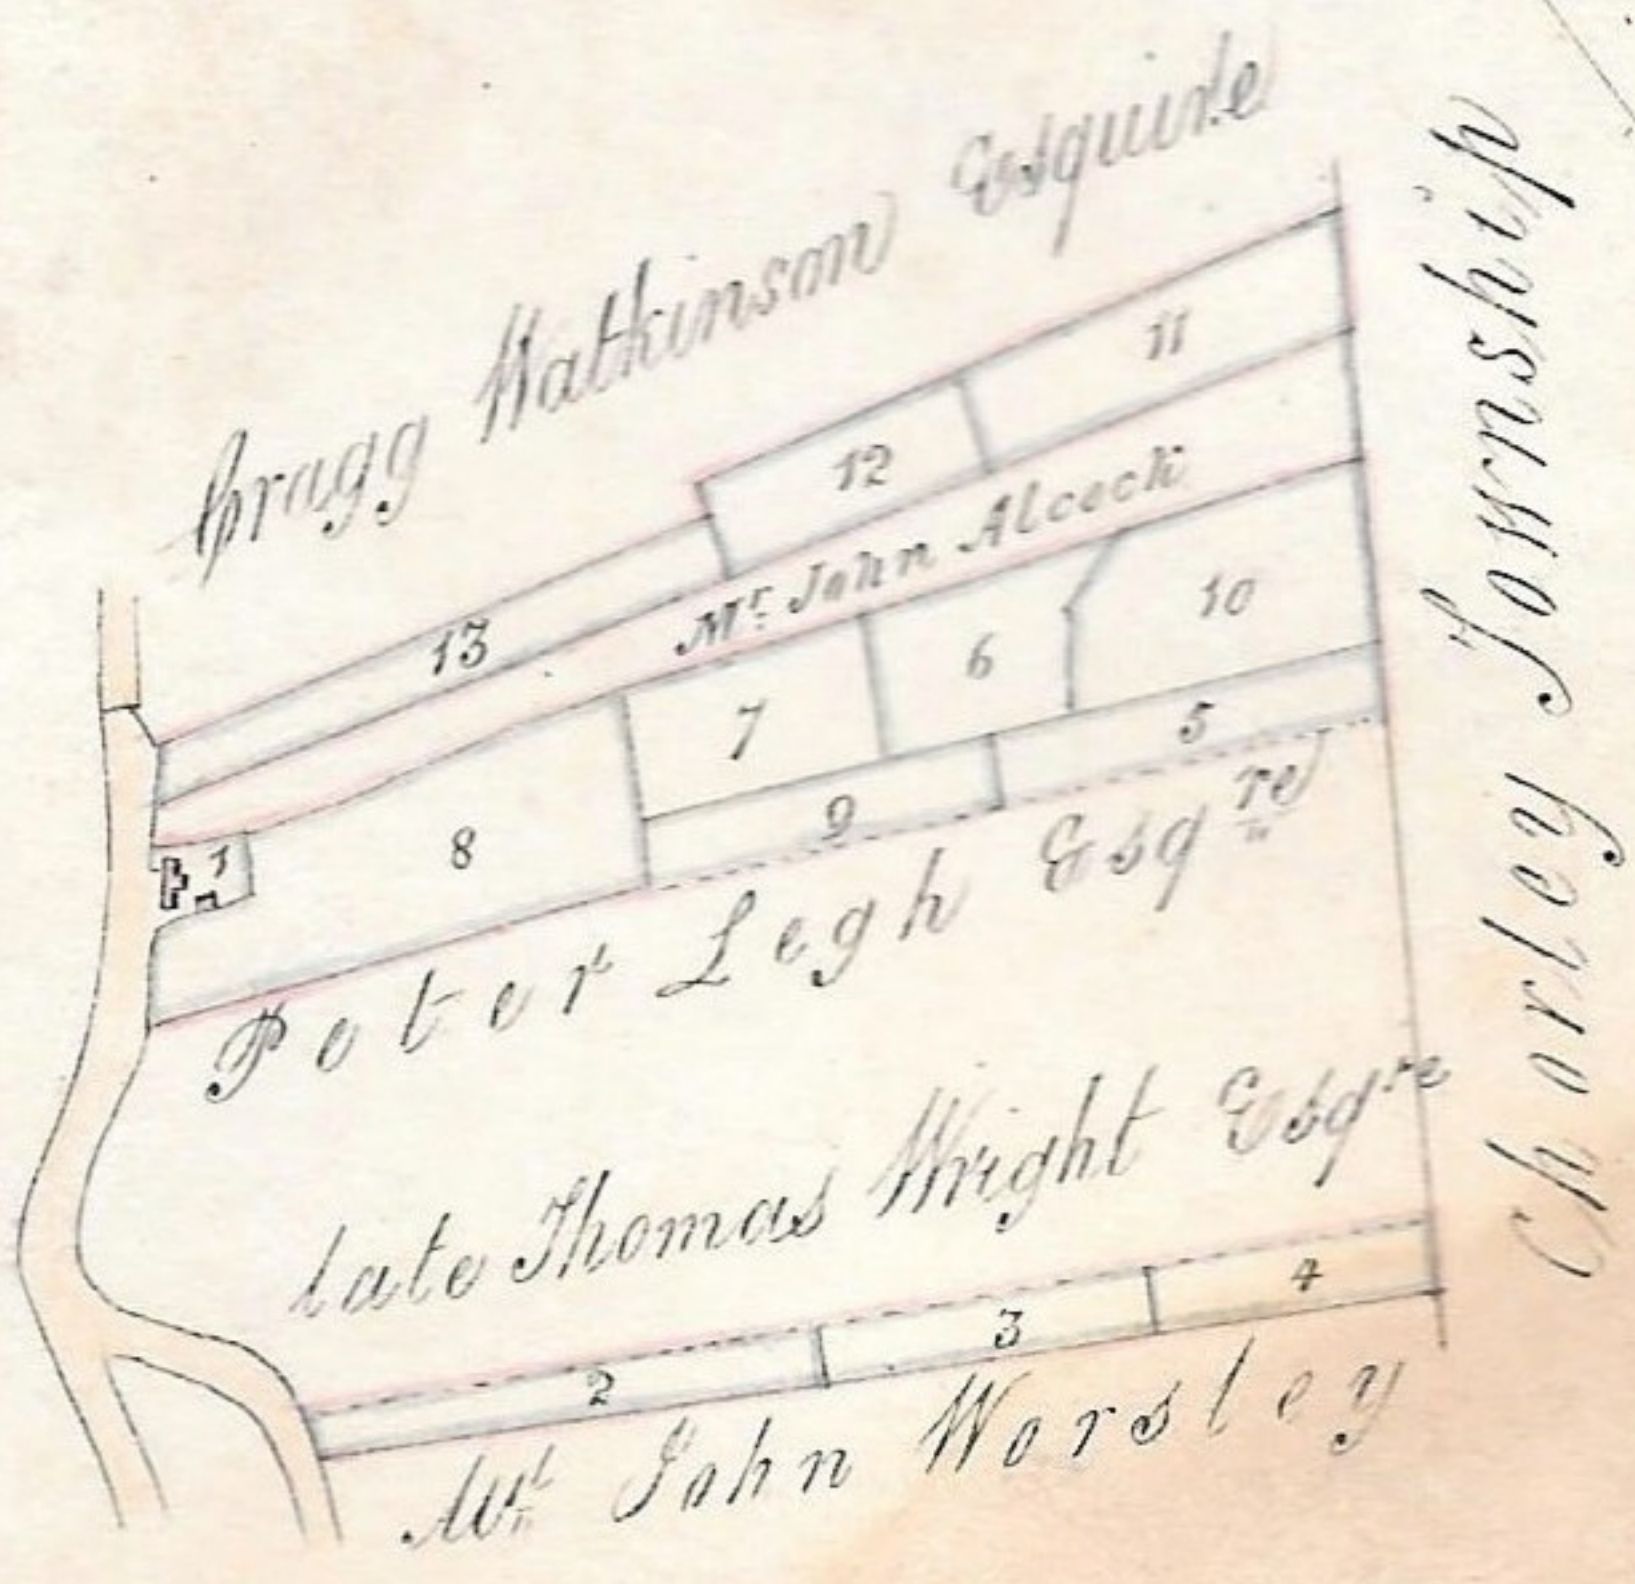 Cragg Watkinson Esquire
11
12
Mr. John Alcock
13
10
6
7
5
9
8
1
Peter Legh Esqre
late Thomas Wright Esqre
4
3
2
Mr. John Worsley
Chorley Township